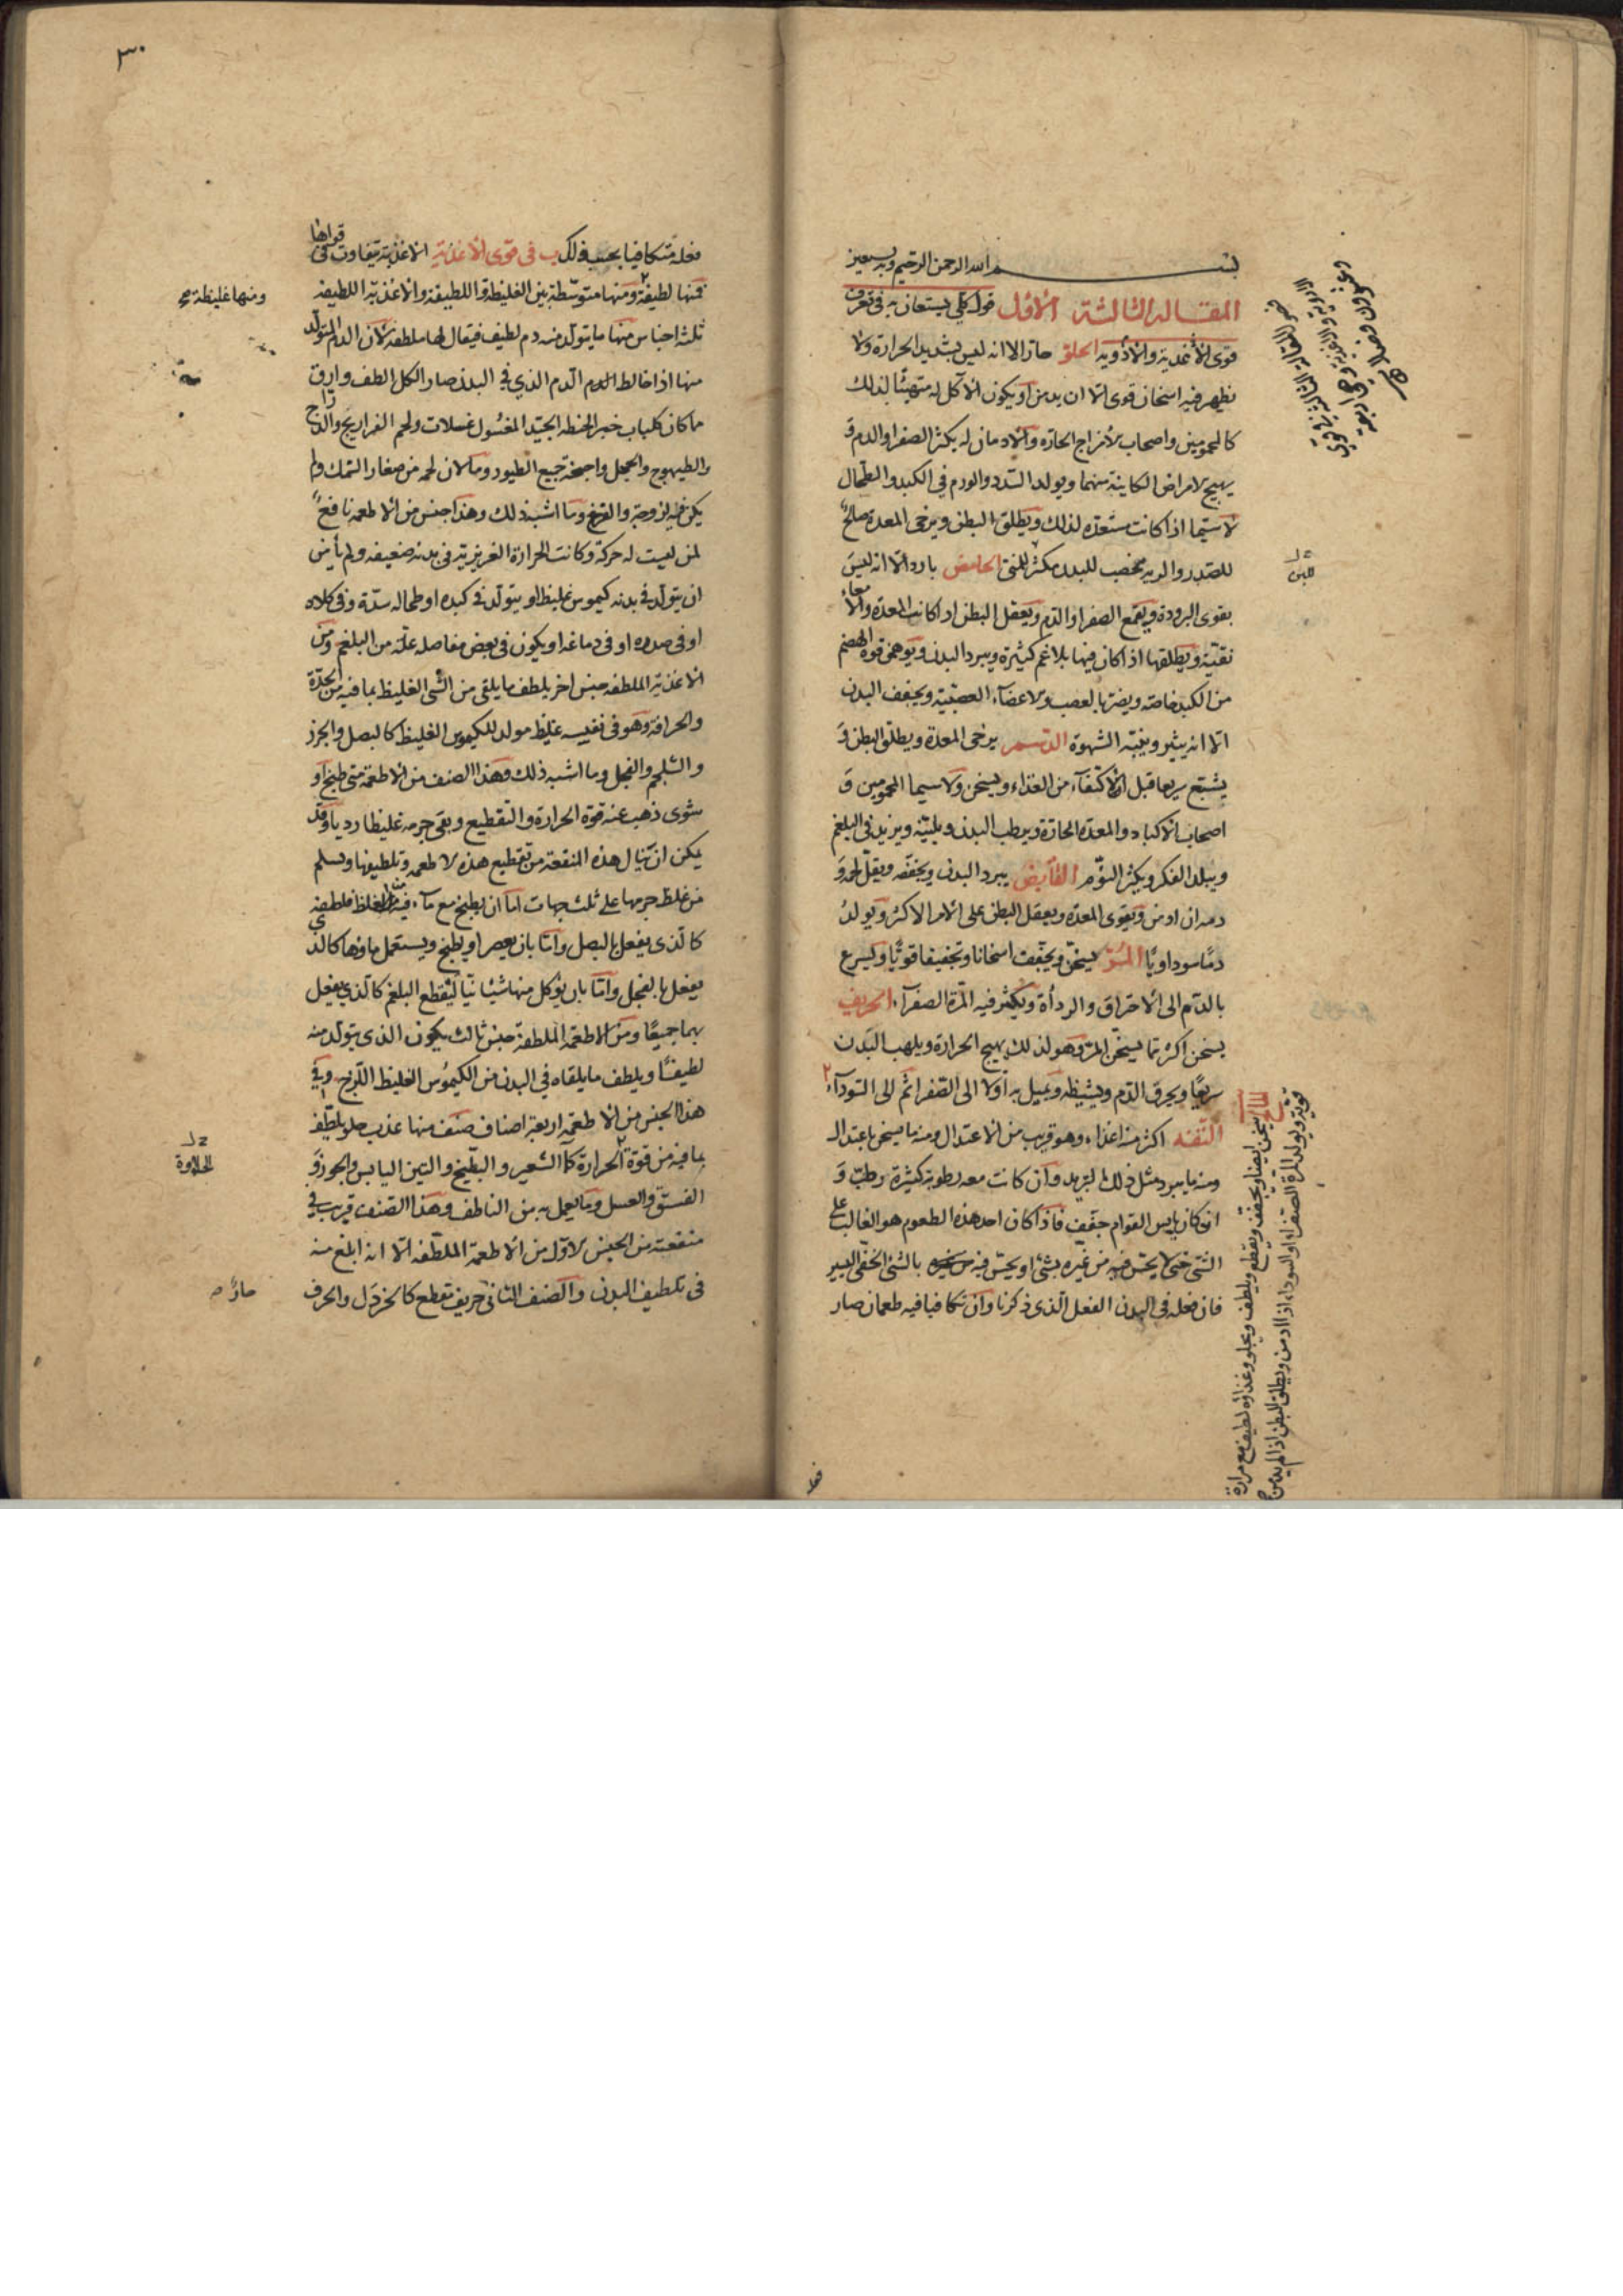 بسم الله الرحمن الرحيم وبه نستعين
المقالة الثالثة الاول قول كلي يستعان به في تعرف
قوى الاغذية والادوية الحلو حار الا انه ليس بشديد الحرارة ولا
يظهر فيه اسخان قوى الا ان يدمن او يكون الآكل له متهيئا لذلك
كالمحمومين واصحاب الامزاج الحارة والادمان له يكثر الصفرا والدم و
يهيج الامراض الكاينة منهما ويولد السدد والورم في الكبد والطحال
لا سيما اذا كانت مستعدة لذلك ويطلق البطن ويرخى المعدة صالح
للصدر والرية مخصب للبدن مكثر للمنى الحامض بارد الا انه ليس
بقوى البرودة ويقمع الصفرا والدم ويعقل البطن اذا كانت المعدة والامعاء
نقية ويطلقها اذا كان فيها بلاغم كثيرة ويبرد البدن ويوهن قوة الهضم
من الكبد خاصة ويضر بالعصب والاعضاء العصبية ويجفف البدن
الا انه يثير وينبه الشهوة الدسم يرخى المعدة ويطلق البطن و
يشبع سريعا قبل الاكتفاء من الغذاء ويسخن ولا سيما المحمومين و
اصحاب الاكباد والمعدة الحارة ويرطب البدن ويلينه ويزيد في البلغم
ويبلد الفكر ويكثر النوم القابض يبرد البدن ويجففه ويقل لحمه و
دمه ان ادمن ويقوى المعدة ويعقل البطن على الامر الاكثر ويولد
دما سوداويا المر يسخن ويجفف اسخانا وتجفيفا قويا ويسرع
بالدم الى الاحتراق والرداة ويكثر فيه المرة الصفراء الحريف
يسخن اكثر مما يسخن المر وهو لذلك يهيج الحرارة ويلهب البدن
سريعا ويحرق الدم ويشيطه ويميل به اولا الى الصفرا ثم الى السوداء
التفه اكثر منه اغذاء وهو قريب من الاعتدال ومنه ما يسخن باعتدال
ومنه ما يبرد مثل ذلك التبريد وان كانت معه رطوبة كثيرة رطب و
ان كان يابس القوام جفف فاذا كان احد هذه الطعوم هو الغالب على
الشى حتى لا يحس فيه من غيره بشى او يحس فيه بالشى الخفى اليسير
فان فعله في البدن الفعل الذى ذكرنا وان تكافيا فيه طعمان صار
للبن
المالح يسخن ايضا ويجفف ويقطع ويلطف ويجلو وغذاؤه لطيف مع مرارة
قوية ويولد المرة الصفراء او السوداء اذا ادمن ويطلق البطن اذا لم يدمن
٣٠
فعله متكافيا بحسب ذلك ب في قوى الاغذية الاغذية يتفاوت في قواها
فمنها لطيفة ومنها متوسطة بين الغليظة واللطيفة والاغذية اللطيفة
ومنها غليظة صح
ثلثة اجناس منها ما يتولد منه دم لطيف فيقال لها ملطفة لان الدم المتولد
منها اذا خالط الدم الذي في البدن صار الكل الطف وارق
ما كان كلباب خبز الحنطة الجيد المغسول غسلات ولحم الفراريج والدراج
والطيهوج والحجل واجنحة جميع الطيور وما لان لحمه من صغار السمك ولم
يكن فيه لزوجة والقرع وما اشبه ذلك وهذا جنس من الاطعمة نافع
لمن ليست له حركة وكانت الحرارة الغريزية في بدنه ضعيفة ولم يأمن
ان يتولد في بدنه كيموس غليظ او يتولد في كبده او طحاله سدة وفي كلاه
او في صدره او في دماغه او يكون في بعض مفاصله علة من البلغم ومن
الاغذية الملطفة جنس اخر يلطف ما يلقى من الشى الغليظ بما فيه من الحدة
والحرافة وهو في نفسه غليظ مولد للكيموس الغليظ كالبصل والجزر
والشلجم والفجل وما اشبه ذلك وهذا الصنف من الاطعمة متى طبخ او
شوى ذهب عنه قوة الحرارة والتقطيع وبقى جرمه غليظا رديا وقد
يمكن ان ينال هذه المنفعة من تقطيع هذه الاطعمة وتلطيفها ويسلم
من غلظ جرمها على ثلث جهات اما ان يطبخ مع ماء
كالذى يفعل بالبصل واما بان يعصر او يطبخ ويستعمل ماؤها كالذى
يفعل بالفجل واما بان يؤكل منها شيئا نيا ليقطع البلغم كالذي يفعل
بهما جميعا ومن الاطعمة الملطفة جنس ثالث يكون الذى يتولد منه
لطيفا ويلطف ما يلقاه في البدن من الكيموس الغليظ اللزج وفي
هذا الجنس من الاطعمة اربعة اصناف صنف منها عذب حلو يلطف
بما فيه من قوة الحرارة كماء الشعير والبطيخ والتين اليابس والجوز و
الحلاوة
الفستق والعسل وما يعمل به من الناطف وهذا الصنف قريب في
منفعته من الجنس الاول من الاطعمة الملطفة الا انه ابلغ منه
في تلطيف البدن والصنف الثانى حريف يقطع كالخردل والحرف
حار